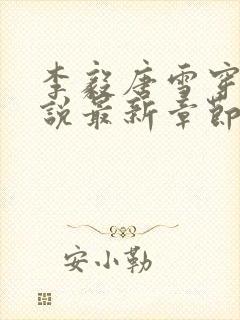 李毅唐雪穿
说最新章节
安小勒